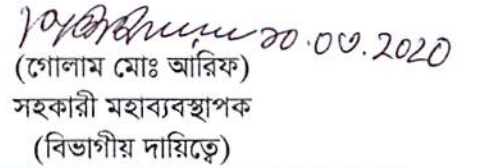 ১০.০৩.2020
(গোলাম মোঃ আরিফ)
সহকারী মহাব্যবস্থাপক
(বিভাগীয় দায়িত্বে)